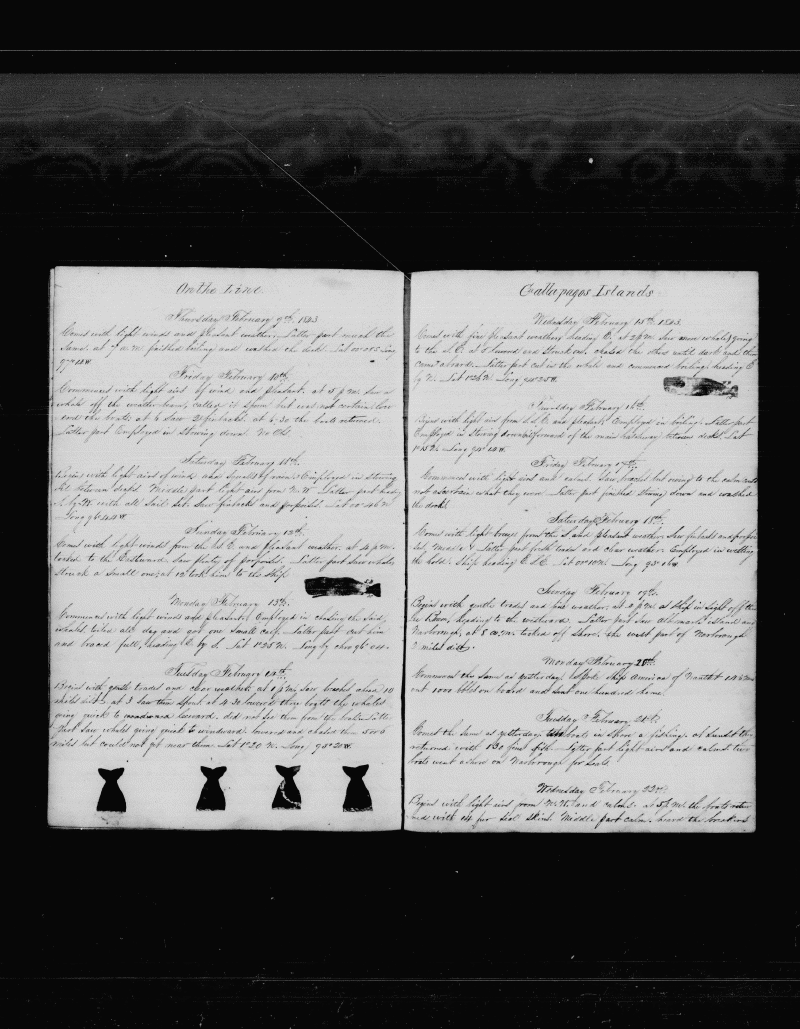 On the Line
Thursday February 9th 1843
Comes with light winds and pleasant weather. Latter part much the
same. at 7 a.m. finished boiling and washed the deck. Lat 00°05 Long
97°18 W
Friday February 10th
Commences with light airs of wind and pleasant. at 5 p.m. saw a
whale off the weather beam, called it sperm but was not certain, lore
and the boats, at 6 saw 2 finbacks. at 6.30 the boats returned.
Latter part Employed in Stowing down. No Obs.
Saturday February 11th
Begins with light airs of wind and smalls of rain. Employed in stowing
oil between decks. Middle part light airs from N.W. Latter part heading
by W. with all sail set. Saw finbacks and porpoises. Lat 00°46 N
Long 96°44 W
Sunday February 12th
Comes with light winds from the S.E. and pleasant weather. at 4 p.m.
tacked to the Eastward. saw plenty of porpoises. Latter part saw whales
struck a small one; at 12 took him to the ship.
Monday February 13th
Commences with light winds and pleasant; Employed in chasing the said
whales, tacked all day and got one small calf. Latter part cut him
and braced full, heading E. by S. Lat 1°25 N. Long by chro 96°
Tuesday February 14th
Begins with gentle trades and clear weather; at 1 p.m. saw
miles at 3 saw them spout at 4.30 lowered they the whales
going quick to leeward. did not see them from the boats. Latter
Part saw whales going quick to windward. lowered and chased them 5 or 6
miles but could not get near them. Lat 1°20 N. Long 95°20 W.
Gallerpagos Islands
Wednesday February 15th 1843
Comes with fine pleasant weather heading E. at 2 p.m. saw more whales going
to the S.E. at lowered and struck one. chased the others until dark and then
came aboard. Latter part cut in the whale and commenced boiling; heading E
by N. Lat 1°26 N. Long 94°25 W.
Thursday February 16th
Begins with light airs from S.E. and pleasant; Employed in boiling. Latter part
Employed in stowing down afterward of the main hatchway between decks. Lat
1°15 N. Long 94°14 W.
Friday February 17th
Commences with light airs and calms. Saw breaches but owing to the calm could
not ascertain what they were. Latter part finished stowing down and washed
the decks.
Saturday February 18th
Comes with light breeze from the S and pleasant weather. Saw finbacks and porpoi-
ses. Middle & Latter part fresh trades and clear weather. Employed in wetting
the hold. Ship heading E.S.E. Lat 00°10 N. Long 93°
Sunday February 19th
Begins with gentle trades and fine weather; at 2 p.m. a ship in sight off the
lee Beam, heading to the westward. Latter part saw Albemarle island and
Narborough, at 8 a.m. tacked off shore. the west part of Narborough
miles distt.
Monday February 20th
Commences the same as yesterday. spoke ship America of Nantucket 14½ mos
out 1000 bbls on board and sent one hundred home.
Tuesday February 21st
Comes the same as yesterday. boats in shore a fishing. at Sundown they
returned with 130 fine fish. Latter part light airs and calms. two
boats went ashore on Narborough for seals.
Wednesday February 22nd
Begins with light airs from N. and calms. at 5 p.m. the boats retur-
ned with 14 fur seal skins. Middle part calm. heard the breakers